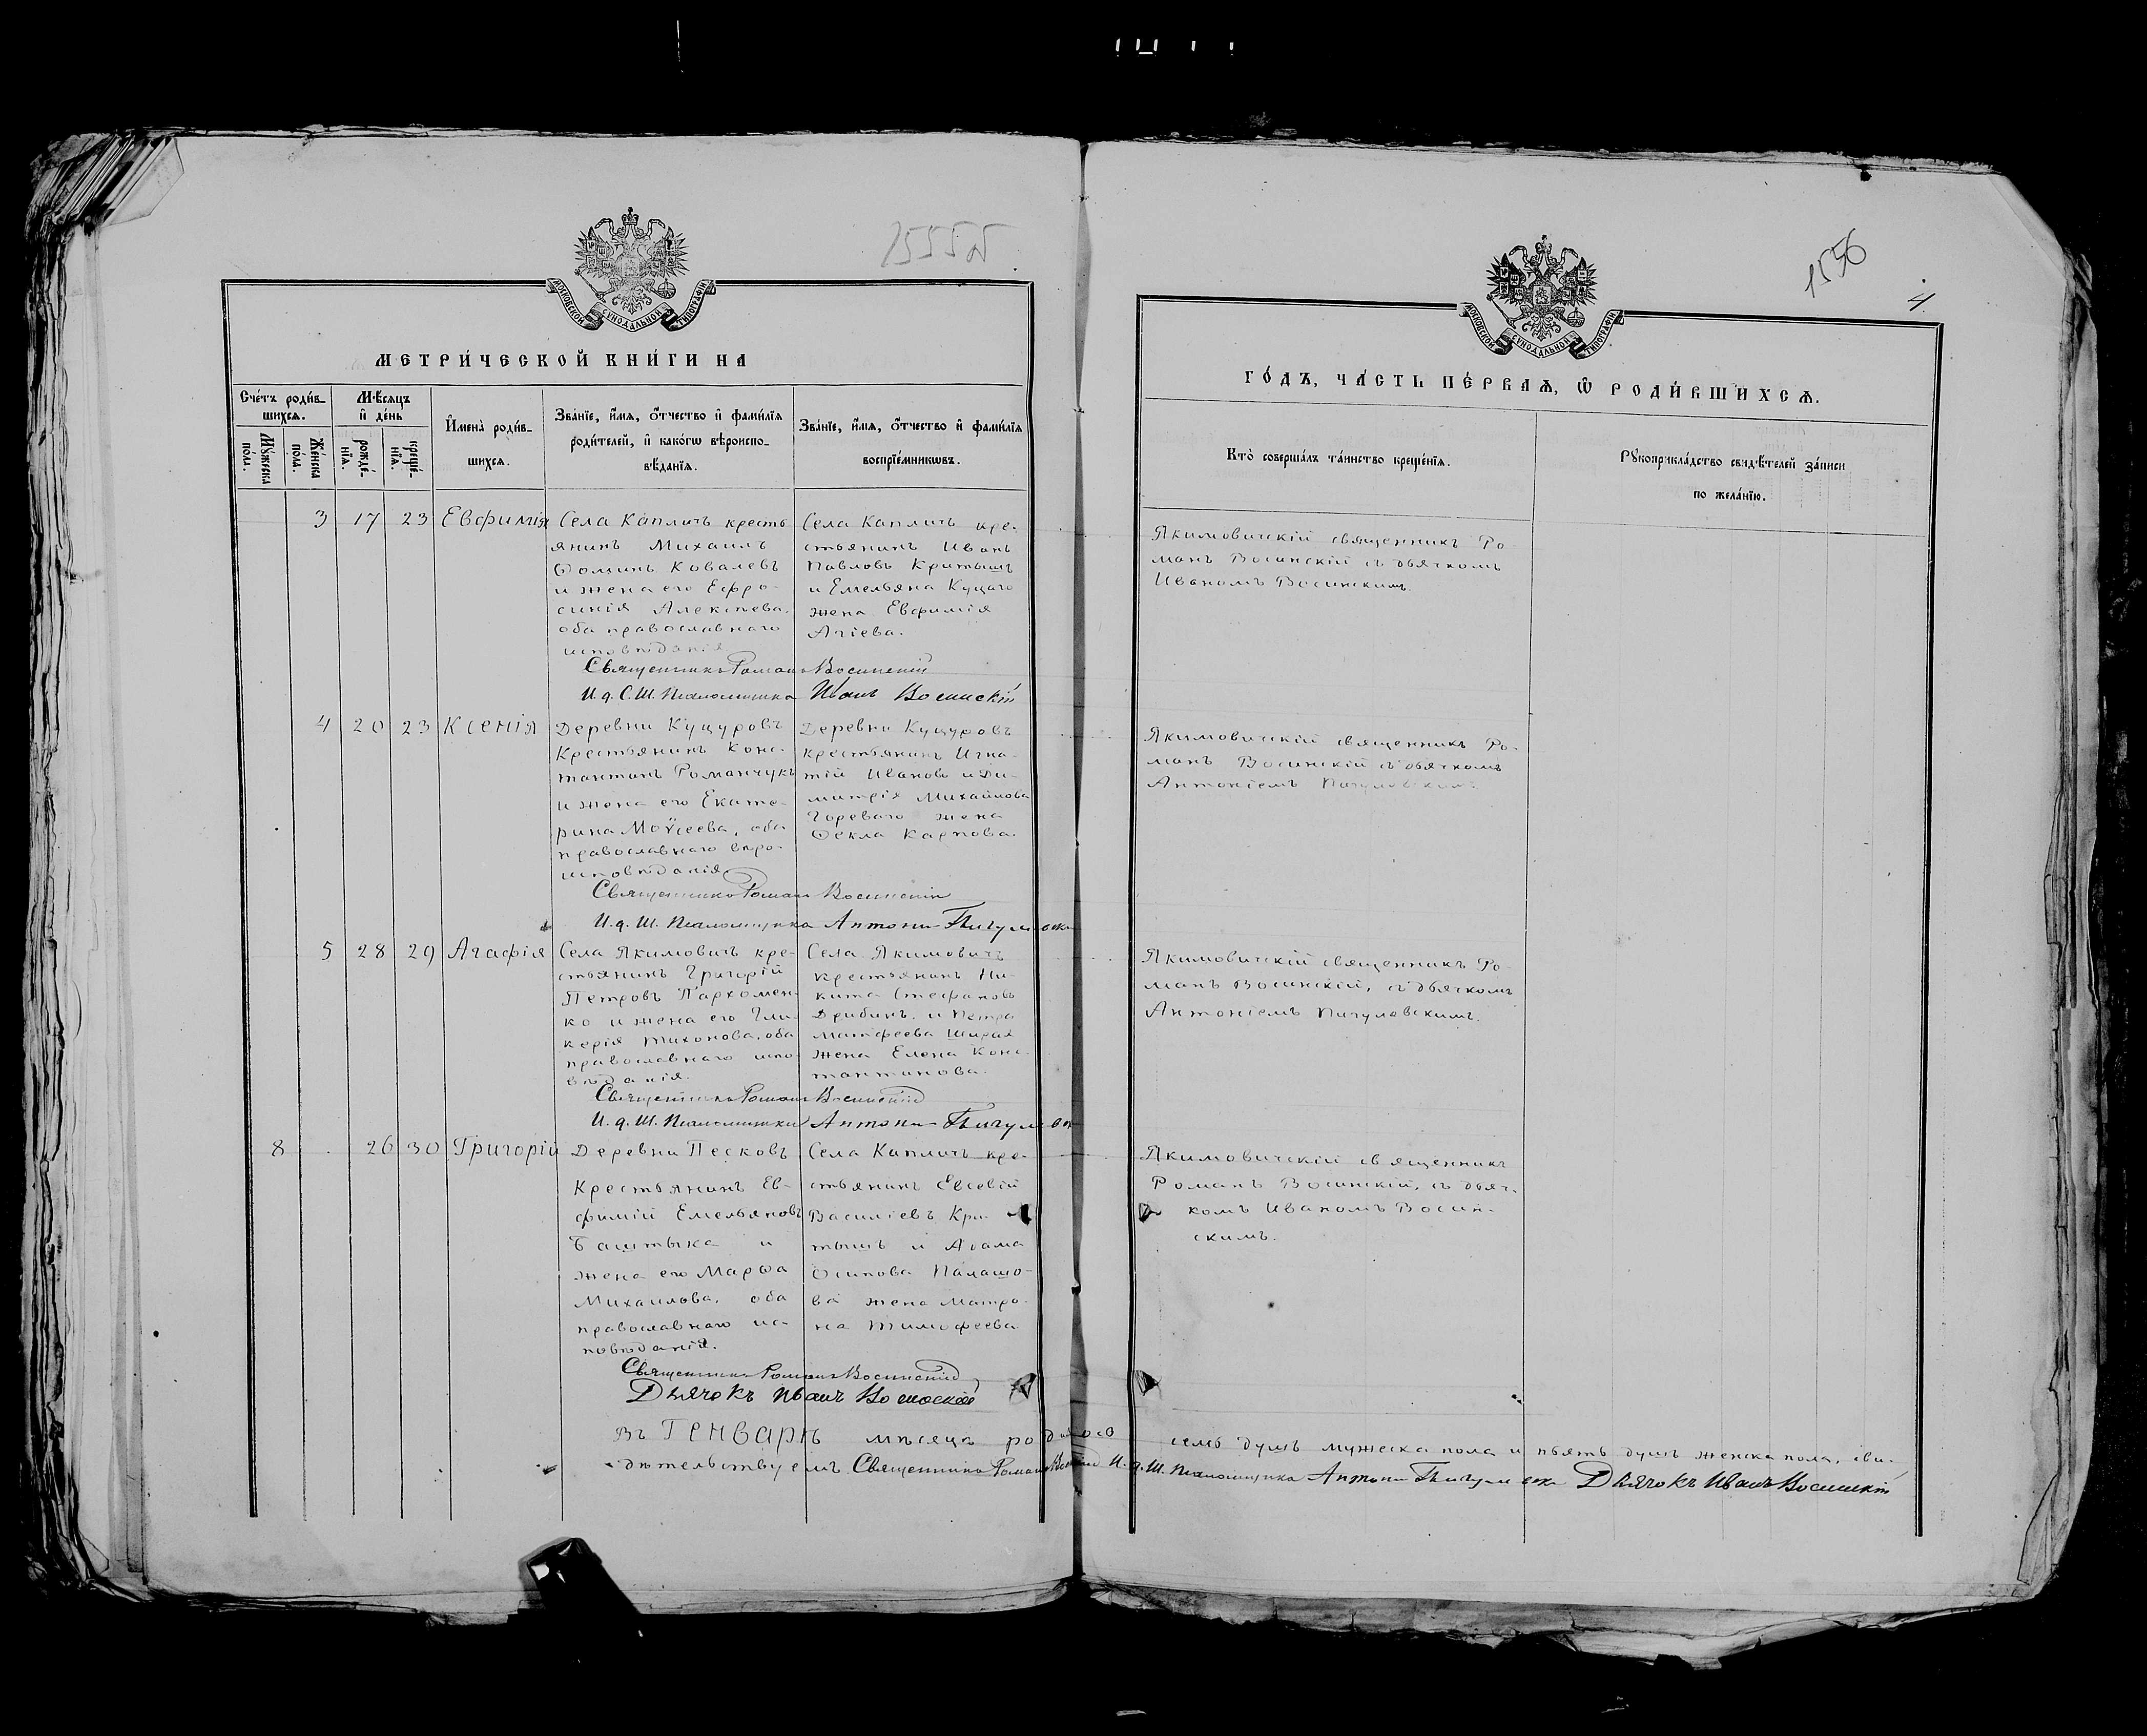 1555 об
1556
4.
МОСКОВСКОЙ СѴНОДАЛЬНОЙ ТИПОГРАФІИ
МЕТРИ́ЧЕСКОЙ КНИ́ГИ НА
Сче́тъ роди́в-
шихся.
Мꙋ́жеска
по́ла.
Же́нска
пола.
Мѣ́сяцъ
и҆ де́нь
рожде́-
нїя.
креще́-
нїя.
И҆мена̀ роди́в-
шихся.
Зва́нїе, и҆́мя, ѻ҆́тчество и҆ фами́лїя
роди́телей, и҆ како́гѡ вѣроиспо-
вѣ́данїя.
Зва́нїе, и҆́мя, ѻ҆́тчество и҆ фами́лїя
воспрїе́мникѡвъ.
3 17 23 Евфимія
Села Капличъ кресть
янинъ Михаилъ
Ѳоминъ Ковалевъ
и жена его Ефро-
синія Алексѣева.
оба православнаго
исповѣданія
Села Капличъ кре-
стьянинъ Иванъ
Павловъ Критышъ
и Емельяна Куцаго
жена Евфимія
Агіева.
Священникъ Романъ Восинскій
И. д. С. Ш. Псаломщика Иванъ Восинскій
4 20 23 Ксенія
Деревни Куцуровъ
Крестьянинъ Конс-
тантинъ Романчукъ
и жена его Екате-
рина Моѵсеева, оба
православнаго вѣро-
исповѣданія
Деревни Куцуровъ
крестьянинъ Игна-
тій Ивановъ и Ди-
митрія Михайлова
Гореваго жена
Ѳекла Карпова.
Священникъ Романъ Восинскій
И. д. Ш. Псаломщика Антоній Пигулевскій
5 28 29 Агафія
Села Якимовичъ кре-
стьянинъ Григорій
Петровъ Пархомен-
ко и жена его Гли-
керія Тихонова, оба
православнаго испо-
вѣданія.
Села Якимовичъ
крестьянинъ Ни-
кита Стефановъ
Дрибинъ. и Петра
Матфеева Ширая
жена Елена Конс-
тантинова.
Священникъ Романъ Восинскій
И. д. Ш. Псаломщика Антоній Пигулевскій
8 26 30 Григорій
Деревни Песковъ
Крестьянинъ Ев-
фимій Емельяновъ
Баштыка и
жена его Марѳа
Михаилова. оба
православнаго ис-
повѣданія.
Села Капличъ кре-
стьянинъ Евсевій
Василіевъ Кри-
тышъ и Адама
Осипова Палашо-
ва жена Матро-
на Тимофеева
Священникъ Романъ Восинскій
Дьячокъ Иванъ Восинскій
ГО́ДЪ, ЧА́СТЬ ПЕ́РВАѦ, Ѽ РОДИ́ВШИХСѦ.
Кто̀ соверша́лъ та́инство креще́нїя.
Рꙋкоприкла́дство свидѣ́телей за́писи
по жела́нїю.
Якимовичскій священникъ Ро-
манъ Восинскій съ дьячкомъ
Иваномъ Восинскимъ.
Якимовичскій священникъ Ро-
манъ Восинскій съ дьячкомъ
Антоніемъ Пигулевскимъ.
Якимовичскій священникъ Ро-
манъ Восинскій, съ дьячкомъ
Антоніемъ Пигулевскимъ.
Якимовичскій священникъ
Романъ Восинскій, съ дьяч-
комъ Иваномъ Восин-
скимъ.
Въ Генварѣ мѣсяцѣ родилось семь душъ мужеска пола и пьять душъ женска пола, сви-
дѣтельствуемъ. Священникъ Романъ Восинскій И. д. Ш. Псаломщика Антоній Пигулевскій Дьячокъ Иванъ Восинскій